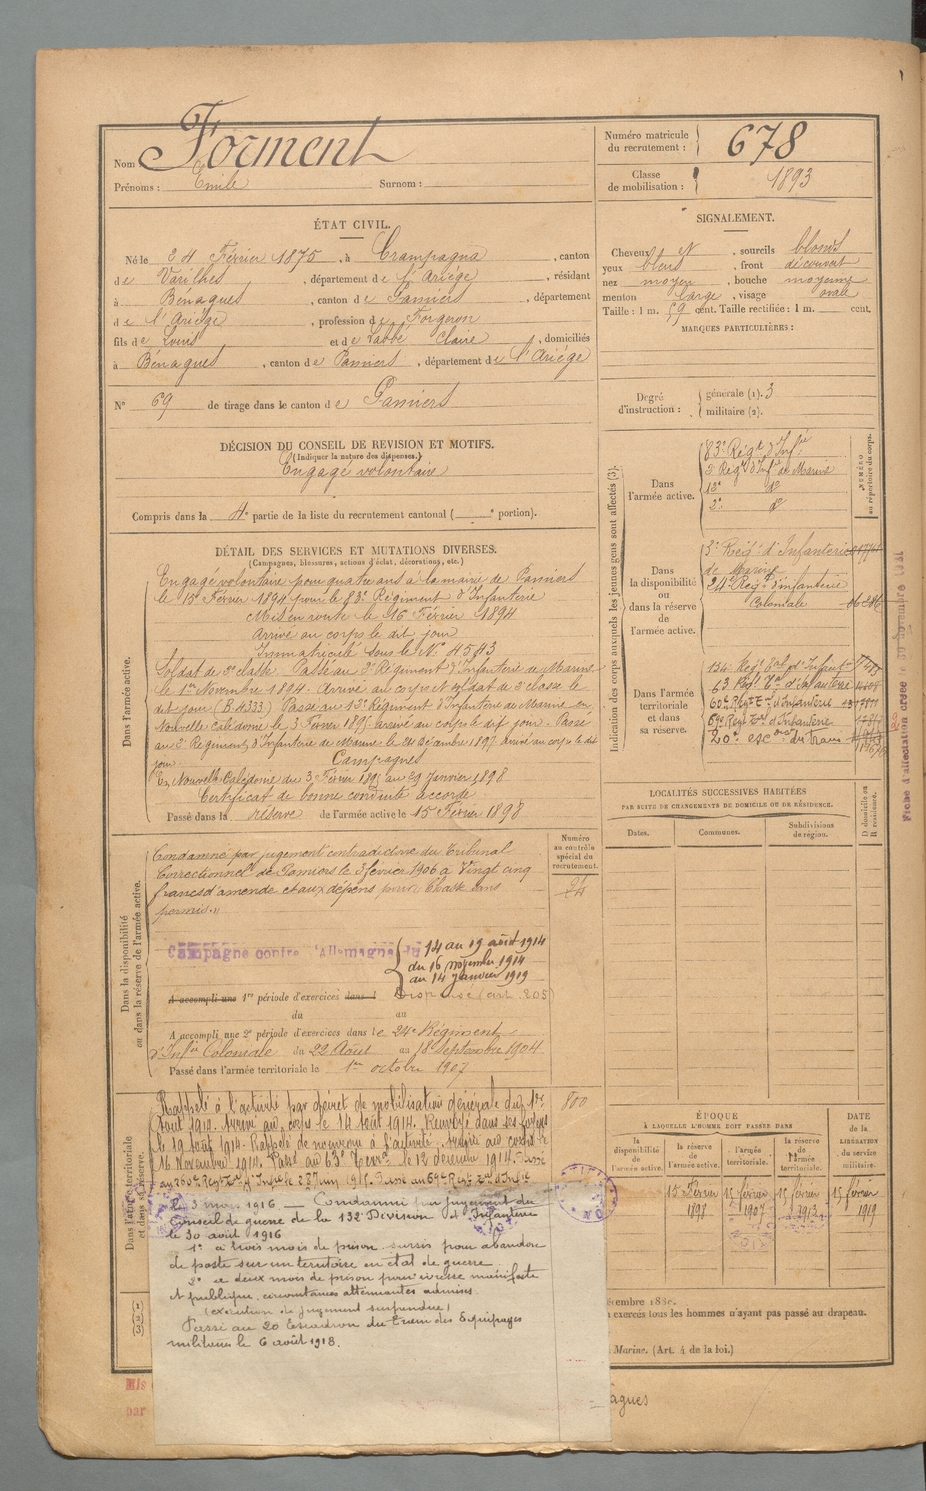 Nom Forment
Prénoms : Emile Surnom :
Numéro matricule du recrutement : 678
Classe de mobilisation : 1893
ÉTAT CIVIL.
Né le 24 Février 1875, à Crampagna, canton
de Varilhes, département de l'Ariége, résidant
à Bénagues, canton de Pamiers, département
de l'Ariége, profession de Forgeron
fils de Louis et de Labbé Claire, domiciliés
à Bénagues, canton de Pamiers, département de l'Ariége
N° 69 de tirage dans le canton de Pamiers
SIGNALEMENT.
Cheveux N, sourcils blonds
yeux bleus, front découvert
nez moyen, bouche moyenne
menton large, visage ovale
Taille : 1 m. 59 cent. Taille rectifiée : 1 m. cent.
MARQUES PARTICULIÈRES :
Degré d'instruction : générale (1). 3
militaire (2).
DÉCISION DU CONSEIL DE REVISION ET MOTIFS.
(Indiquer la nature des dispenses.)
Engagé volontaire
Compris dans la 4e partie de la liste du recrutement cantonal ( e portion).
DÉTAIL DES SERVICES ET MUTATIONS DIVERSES.
(Campagnes, blessures, actions d'éclat, décorations, etc.)
Dans l'armée active.
Engagé volontaire pour quatre ans à la mairie de Pamiers
le 15 Février 1894 pour le 83e Régiment d'Infanterie
Mis en route le 16 Février 1894
Arrivé au corps le dit jour
Immatriculé sous le N° 4543
Soldat de 2e classe. Passé au 3e Régiment d'Infanterie de Marine
le 1er Novembre 1894. Arrivé au corps et soldat de 2e classe le
dit jour (B. 4333). Passé au 12e Régiment d'Infanterie de Marine en
Nouvelle Calédonie le 3 Février 1895 arrivé au corps le dit jour. Passé
au 2e Régiment d'Infanterie de Marine le 24 Décembre 1897 arrivé au corps le dit
jour.
Campagnes
En Nouvelle Calédonie du 3 Février 1895 au 29 Janvier 1898
Certificat de bonne conduite accordé
Passé dans la réserve de l'armée active le 15 Février 1898
Dans la disponibilité ou dans la réserve de l'armée active.
Numéro au contrôle spécial du recrutement.
Condamné par jugement contradictoire du Tribunal
Correctionnel de Pamiers le 3 février 1906 à Vingt cinq
francs d'amende et aux dépens pour "Chasse sans
permis."
Campagne contre l'Allemagne du 14 au 19 août 1914
du 16 novembre 1914
au 14 janvier 1919
A accompli une 1re période d'exercices dans l Dispensé (art. 205)
du au
A accompli une 2e période d'exercices dans le 24e Régiment
d'Infie Coloniale du 22 Août au 18 Septembre 1904
Passé dans l'armée territoriale le 1er octobre 1907
Dans l'armée territoriale et dans sa réserve.
Rappelé à l'activité par décret de mobilisation générale du 1er
Août 1914. Arrivé au corps le 14 Août 1914. Renvoyé dans ses foyers
le 19 Août 1914. Rappelé de nouveau à l'activité. Arrivé au corps le
16 Novembre 1914. Passé au 63e Terral le 12 décembre 1914. Passé
800
le 3 mai 1916 — Condamné par jugement du
Conseil de guerre de la 132e Division d'Infanterie
le 30 août 1916
1° à trois mois de prison sursis pour abandon
de poste sur un territoire en état de guerre
2° à deux mois de prison pour ivresse manifeste
et publique, circonstances atténuantes admises
(exécution du jugement suspendue)
Passé au 20 Escadron du Train des Equipages
militaires le 6 août 1918.
Indication des corps auxquels les jeunes gens sont affectés (3).
NUMÉRO au répertoire du corps.
Dans l'armée active.
83e Régt d'Infie
3 Regt d'Infie de Marine
12e do
2e do
Dans la disponibilité ou dans la réserve de l'armée active.
3e Régt d'Infanterie
de Marine
24e Régt d'infanterie
Coloniale
Dans l'armée territoriale et dans sa réserve.
63 Régt Tal d'Infanterie
69e Régt Teral d'Infanterie
20e esc on du train
Fiche d'affectation créée le 30 Novembre 1921
LOCALITÉS SUCCESSIVES HABITÉES
PAR SUITE DE CHANGEMENTS DE DOMICILE OU DE RÉSIDENCE.
Dates. Communes. Subdivisions de région. D domicile ou R résidence.
ÉPOQUE
A LAQUELLE L'HOMME DOIT PASSER DANS
la disponibilité de l'armée active.
la réserve de l'armée active. 15 Février 1898
l'armée territoriale. 15 février 1907
la réserve de l'armée territoriale. 15 février 1913
DATE de la LIBÉRATION du service militaire. 15 février 1919
exercés tous les hommes n'ayant pas passé au drapeau.
Marine. (Art. 4 de la loi.)
Mis
par
agues